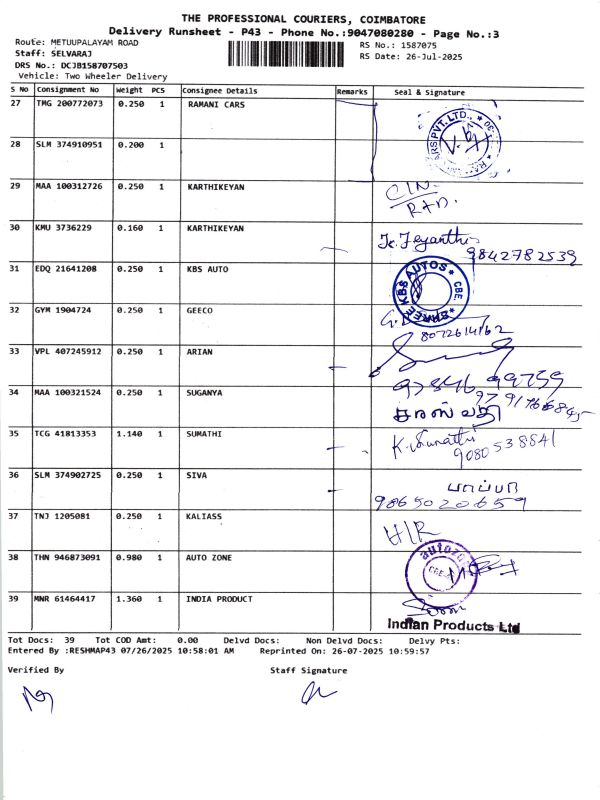 THE PROFESSIONAL COURIERS, COIMBATORE
Delivery Runsheet - P43 - Phone No.:9047080280 - Page No.:3
Route: METUUPALAYAM ROAD
RS No.: 1587075
Staff: SELVARAJ
RS Date: 26-Jul-2025
DRS No.: DCJB158707503
Vehicle: Two Wheeler Delivery
S No Consignment No Weight PCS Consignee Details Remarks Seal & Signature
27 TMG 200772073 0.250 1 RAMANI CARS
28 SLM 374910951 0.200 1
29 MAA 100312726 0.250 1 KARTHIKEYAN
30 KMU 3736229 0.160 1 KARTHIKEYAN
K. Jeyanthi
9842782539
31 EDQ 21641208 0.250 1 KBS AUTO
SHREE KBS AUTOS * CBE. *
32 GYM 1904724 0.250 1 GEECO
8072614162
33 VPL 407245912 0.250 1 ARIAN
97846 99759
34 MAA 100321524 0.250 1 SUGANYA
சரஸ்வதி
35 TCG 41813353 1.140 1 SUMATHI
9080538841
36 SLM 374902725 0.250 1 SIVA
9865020659
37 TNJ 1205081 0.250 1 KALIASS
H/R
38 THN 946873091 0.980 1 AUTO ZONE
39 MNR 61464417 1.360 1 INDIA PRODUCT
Indian Products Ltd
Tot Docs: 39 Tot COD Amt: 0.00 Delvd Docs: Non Delvd Docs: Delvy Pts:
Entered By :RESHMAP43 07/26/2025 10:58:01 AM Reprinted On: 26-07-2025 10:59:57
Verified By Staff Signature